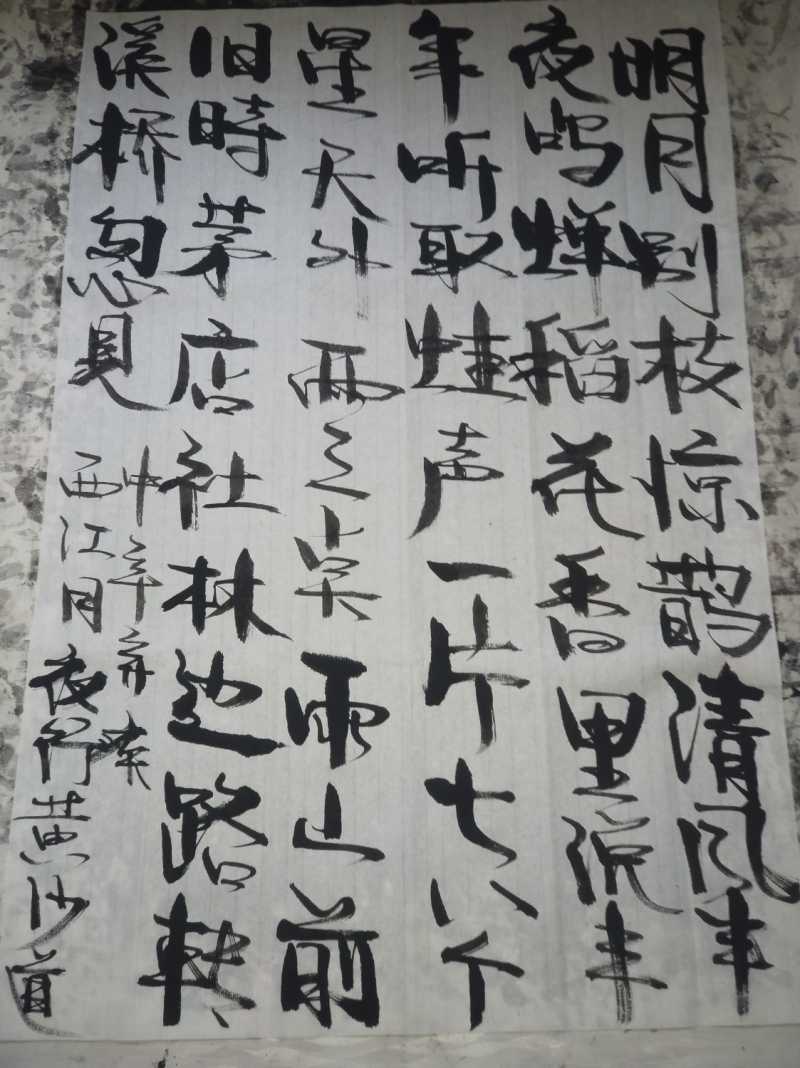 明月别枝惊鹊清风半
夜鸣蝉稻花香里说丰
年听取蛙声一片七八个
星天外两三点雨山前
旧時茅店社林边路转
溪桥忽见
西江月夜行黄沙道
中辛弃疾